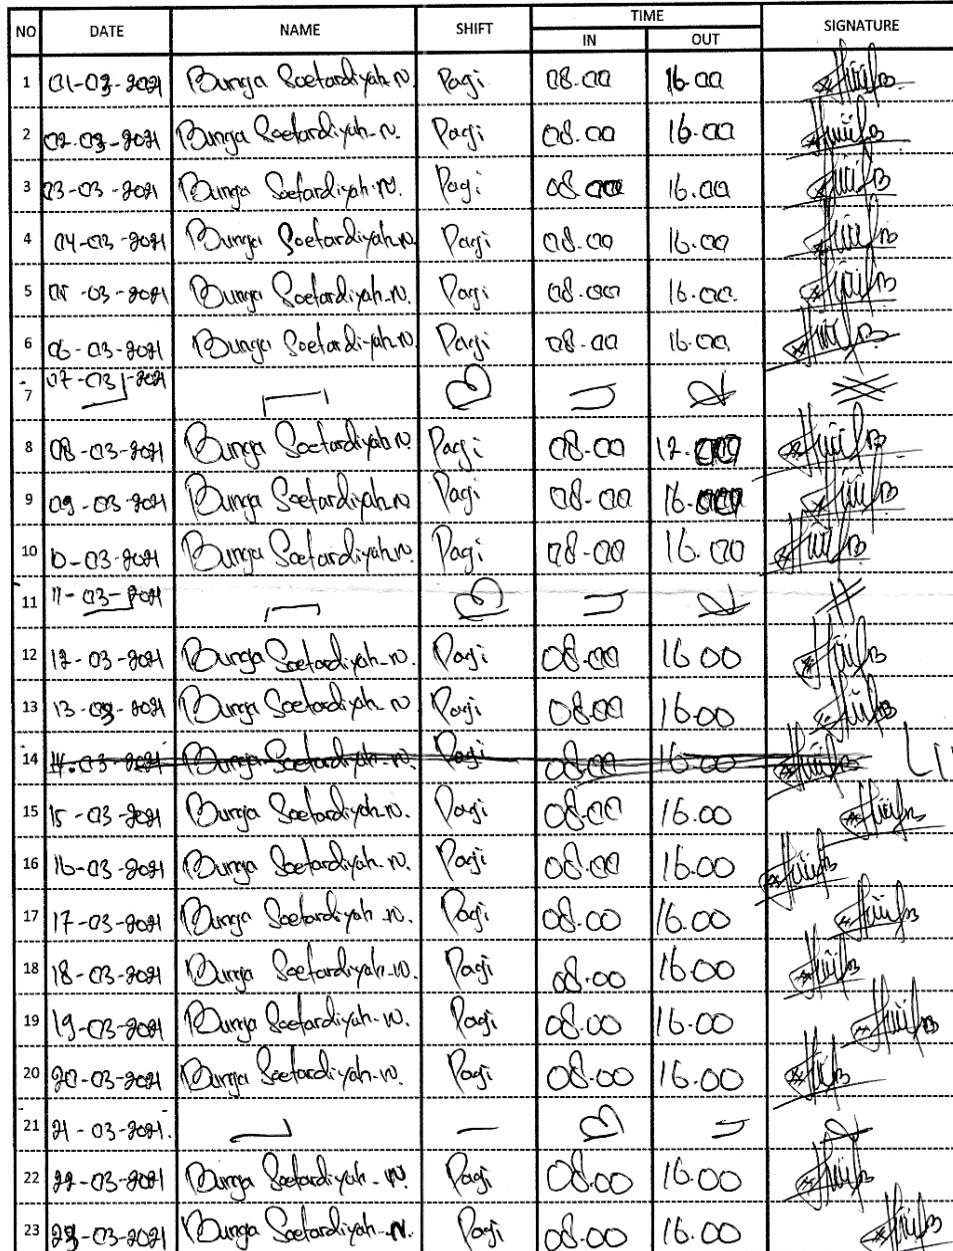 NO DATE NAME SHIFT TIME SIGNATURE
IN OUT
1 01-03-2021 Bunga Soetardiyah.N. Pagi 08.00 16.00
2 02-03-2021 Bunga Soetardiyah.N. Pagi 08.00 16.00
3 03-03-2021 Bunga Soetardiyah.N. Pagi 08.00 16.00
4 04-03-2021 Bunga Soetardiyah.N. Pagi 08.00 16.00
5 05-03-2021 Bunga Soetardiyah.N. Pagi 08.00 16.00
6 06-03-2021 Bunga Soetardiyah.N. Pagi 08.00 16.00
7 07-03-2021 L I B U R
8 08-03-2021 Bunga Soetardiyah N Pagi 08.00 12.00
9 09-03-2021 Bunga Soetardiyah.N Pagi 08.00 16.00
10 10-03-2021 Bunga Soetardiyah N Pagi 08.00 16.00
11 11-03-2021 L I B U R
12 12-03-2021 Bunga Soetardiyah.N. Pagi 08.00 16.00
13 13-03-2021 Bunga Soetardiyah N Pagi 08.00 16.00
14 14-03-2021 Bunga Soetardiyah.N. Pagi 08.00 16.00
15 15-03-2021 Bunga Soetardiyah.N. Pagi 08.00 16.00
16 16-03-2021 Bunga Soetardiyah.N. Pagi 08.00 16.00
17 17-03-2021 Bunga Soetardiyah.N. Pagi 08.00 16.00
18 18-03-2021 Bunga Soetardiyah.N. Pagi 08.00 16.00
19 19-03-2021 Bunga Soetardiyah.N. Pagi 08.00 16.00
20 20-03-2021 Bunga Soetardiyah.N. Pagi 08.00 16.00
21 21-03-2021. L I B U R
22 22-03-2021 Bunga Soetardiyah.N. Pagi 08.00 16.00
23 23-03-2021 Bunga Soetardiyah.N. Pagi 08.00 16.00